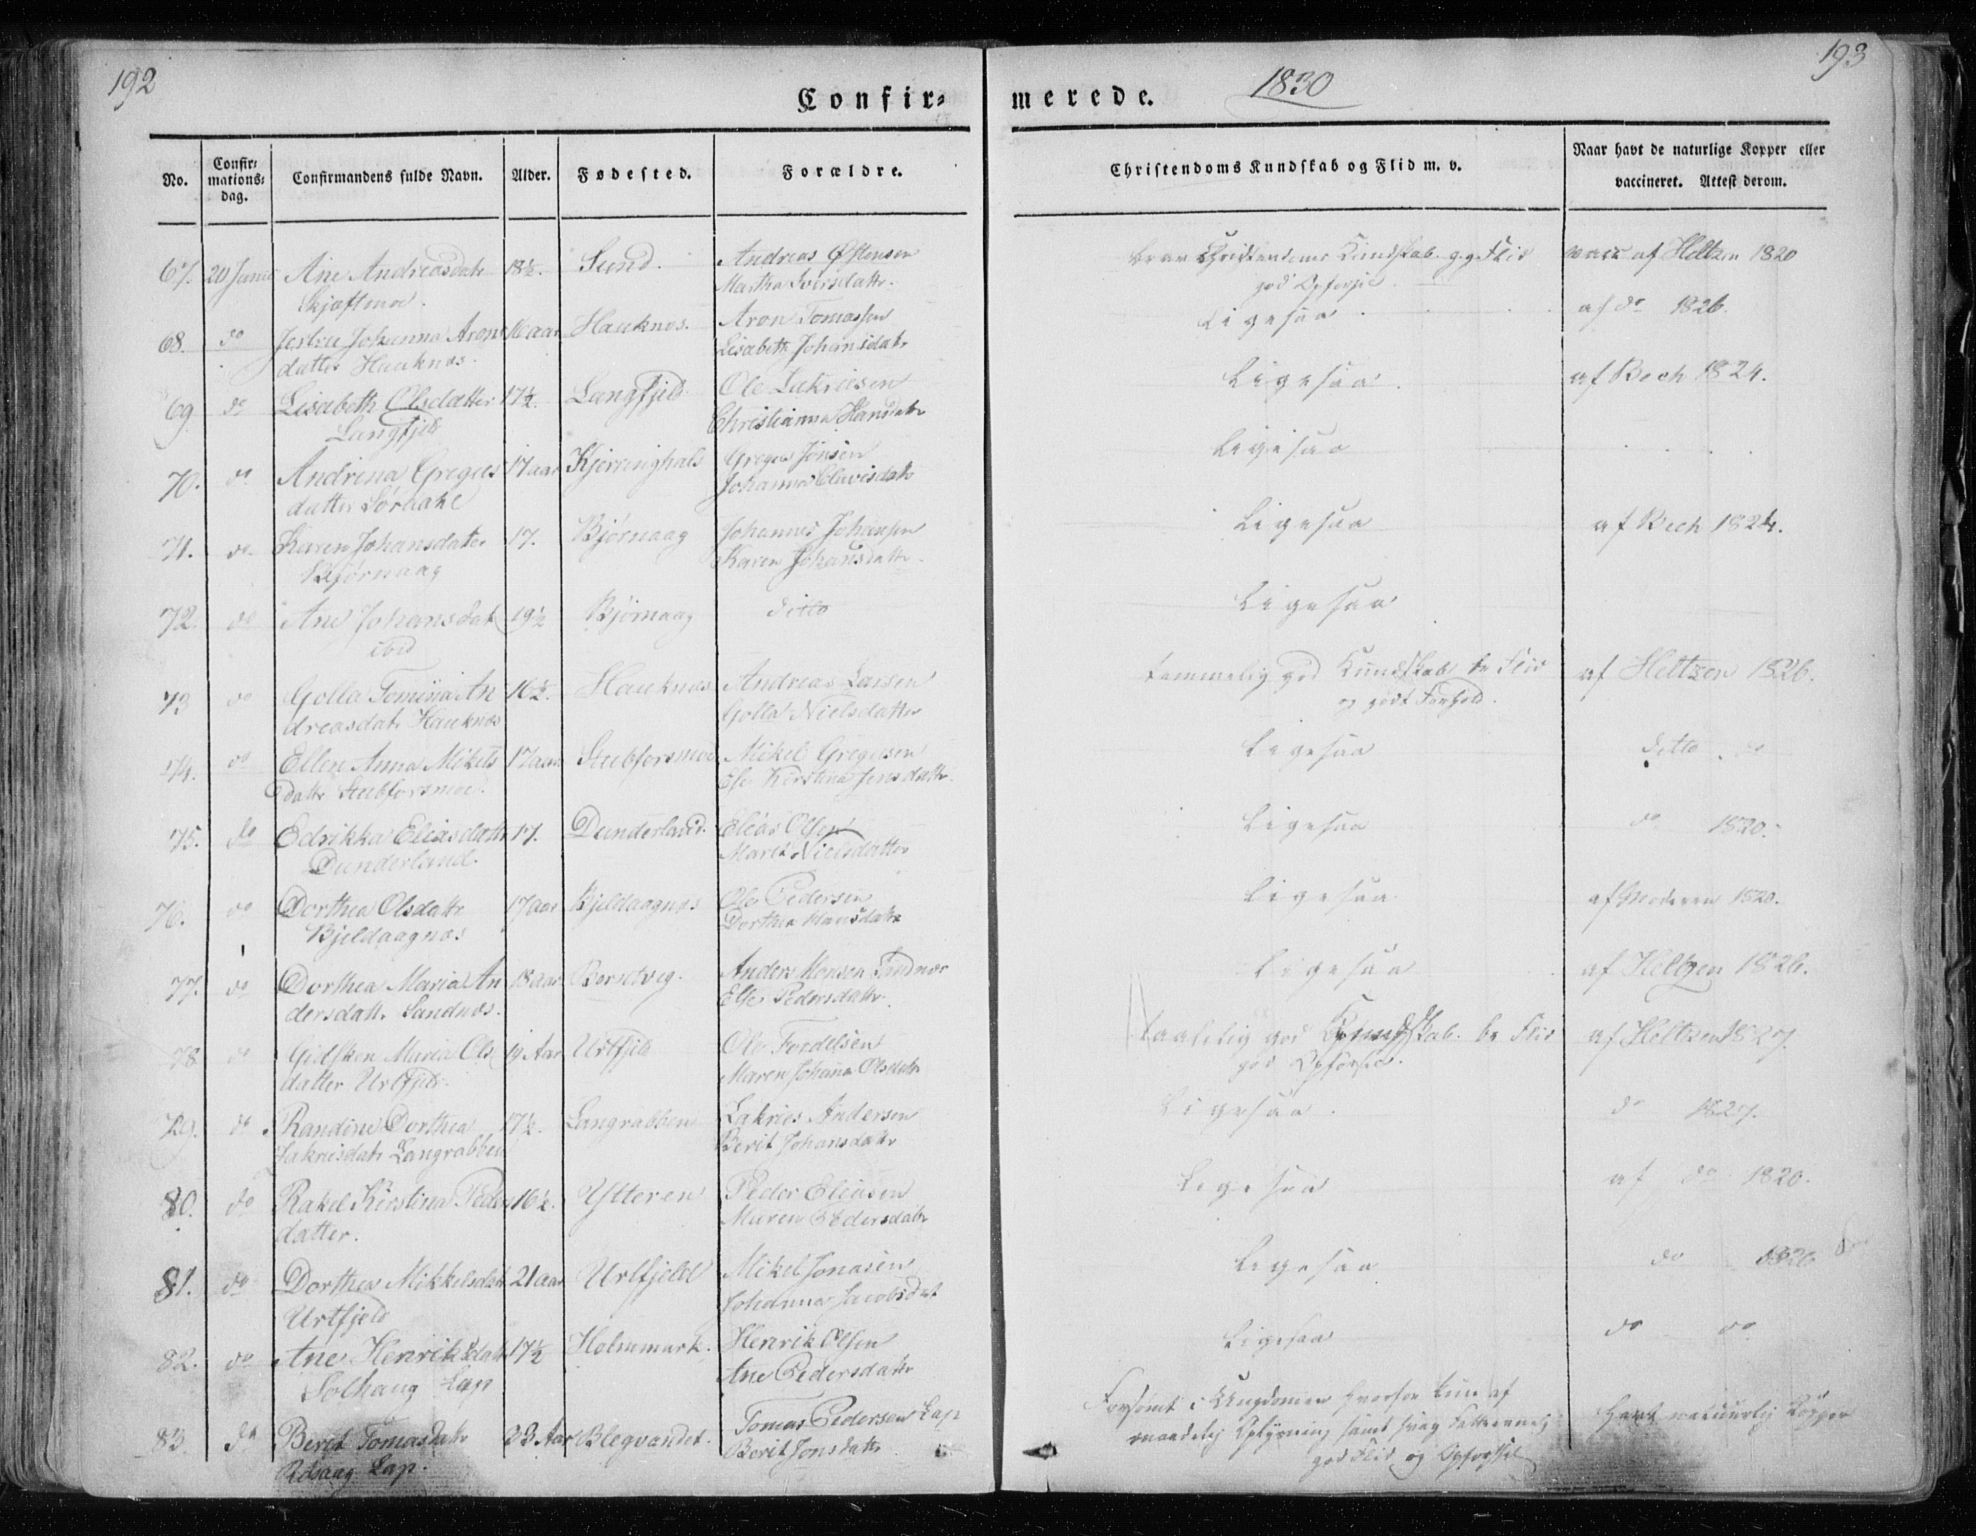 192
193
Confir-
merede.
1830
No.
Confir-
mations-
dag.
Confirmandens fulde Navn.
Alder.
Fødested.
Forældre.
Christendoms Kundskab og Flid m. v.
Naar havt de naturlige Kopper eller
vaccineret. Attest derom.
67. 20 Juni Ane Andreasdatr 18½. Sund. Andreas Østensen
Skjæftmoe. Martha Iversdattr.
brav Christendoms Kundskab g. g. Flid vacc af Heltzen 1820
god Opførsel.
68. do Johanna Arons 16 aar Hauknæs. Aron Tomassen
datter Hauknæs. Lisabeth Johansdatr
Ligesaa af do 1826.
69. do Lisabeth Olsdatter 17½. Langfjeld Ole Zakrisen
Langfjeld Christianna Hansdatr
Ligesaa. af Bech 1824.
70. do Andrina Greges 17 aar Kjerringhals Greger Jonsen
datter Johanna
Ligesaa
71. do Karen Johansdater 17. Bjørnaag Johannes Johansen
Bjørnaag Karen Johansdattr.
Ligesaa af Bech 1824.
72. do Ane Johansdatr 19½ Bjørnaag ditto
ibid
Ligesaa
73 do Golla Tomina An 16½. Hauknæs Andreas Larsen
dreasdatr Hauknæs Golla Nielsdatter
temmelig god Kundskab be Flid af Heltzen 1826.
og godt Forhold.
74. do Ellen Anna Mikels 17 aar Stubforsmoe Mikel Gregersen
datr Stubforsmoe. Kirstina Jensdattr.
Ligesaa ditto do
75. do Edrikka Eliasdattr 17. Dunderland. Elias Olsen
Dunderland. Maret Nielsdatter
Ligesaa do 1820.
76. do Dorthea Olsdattr 17 aar Bjeldaagnæs Ole Pedersen
Bjeldaagnæs Dorthea Hansdattr
Ligesaa af Moderen 1820.
77. do Dorthea Maria An 18 aar Anders Monsen Sandnær
dersdattr. Sandnæs. Else Pedersdattr.
Ligesaa af Heltzen 1826.
78 do Gidsken Maria Ols 19 Aar Urtfjeld Ole Fordelsen
datter Urtfjeld. Maren Johana Olsdatr
taalelig god Kundskab. be Flid af Heltzen 1827.
god Opførsel.
79. do Randine Dorthea 17½. Langrabben Zakries Andersen
Zakrisdatr Langrabben Berit Johansdattr
Ligesaa. do 1827.
80. do Rakel Kirstina Peders 16½. Ytteren Peder Eliasen
datter. Maren Pedersdatr
Ligesaa af do 1820.
81. do Dorthea Mikkelsdatr 21 aar Urtfjeld Mikel Jonasen
Urtfjeld Johanna Jacobsdat
Ligesaa do 1826
82. do Ane Henriksdatr 17½ Holmmark. Henrik Olsen
Solhaug Lap Ane Pedersdattr
Ligesaa do do
83. do Berit Tomasdatr 23 Aar Blegvandet. Tomas Pedersen Lap
Lap. Berit Jonsdattr
Forsømt i Ungdommen hvorfor kun af
maadelig Oplysning samt svag Fatteevne havt naturlig Kopper
god Flid og Opførsel